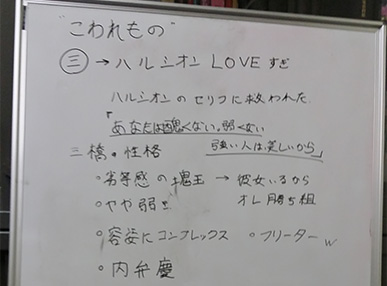 "こわれもの"
㊂→ハルシオン LOVEすぎ
ハルシオンのセリフに救われた
「あなたは醜くない。弱くない
強い人は美しいから」
三橋・性格
・劣等感の塊 → 彼女いるから
オレ勝ち組
・やや弱き
・容姿にコンプレックス ・フリーターw
・内弁慶